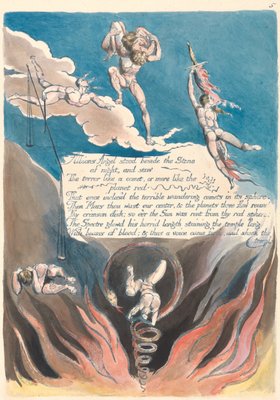 5
Albions Angel stood beside the Stone
of night, and saw
The terror like a comet, or more like the
planet red
That once inclos'd the terrible wandering comets in its sphere.
Then Mars thou wast our center, & the planets three flew round
Thy crimson disk; so e'er the Sun was rent from thy red sphere;
The Spectre glowd his horrid length staining the temple long
With beams of blood; & thus a voice came forth, and shook the
temple